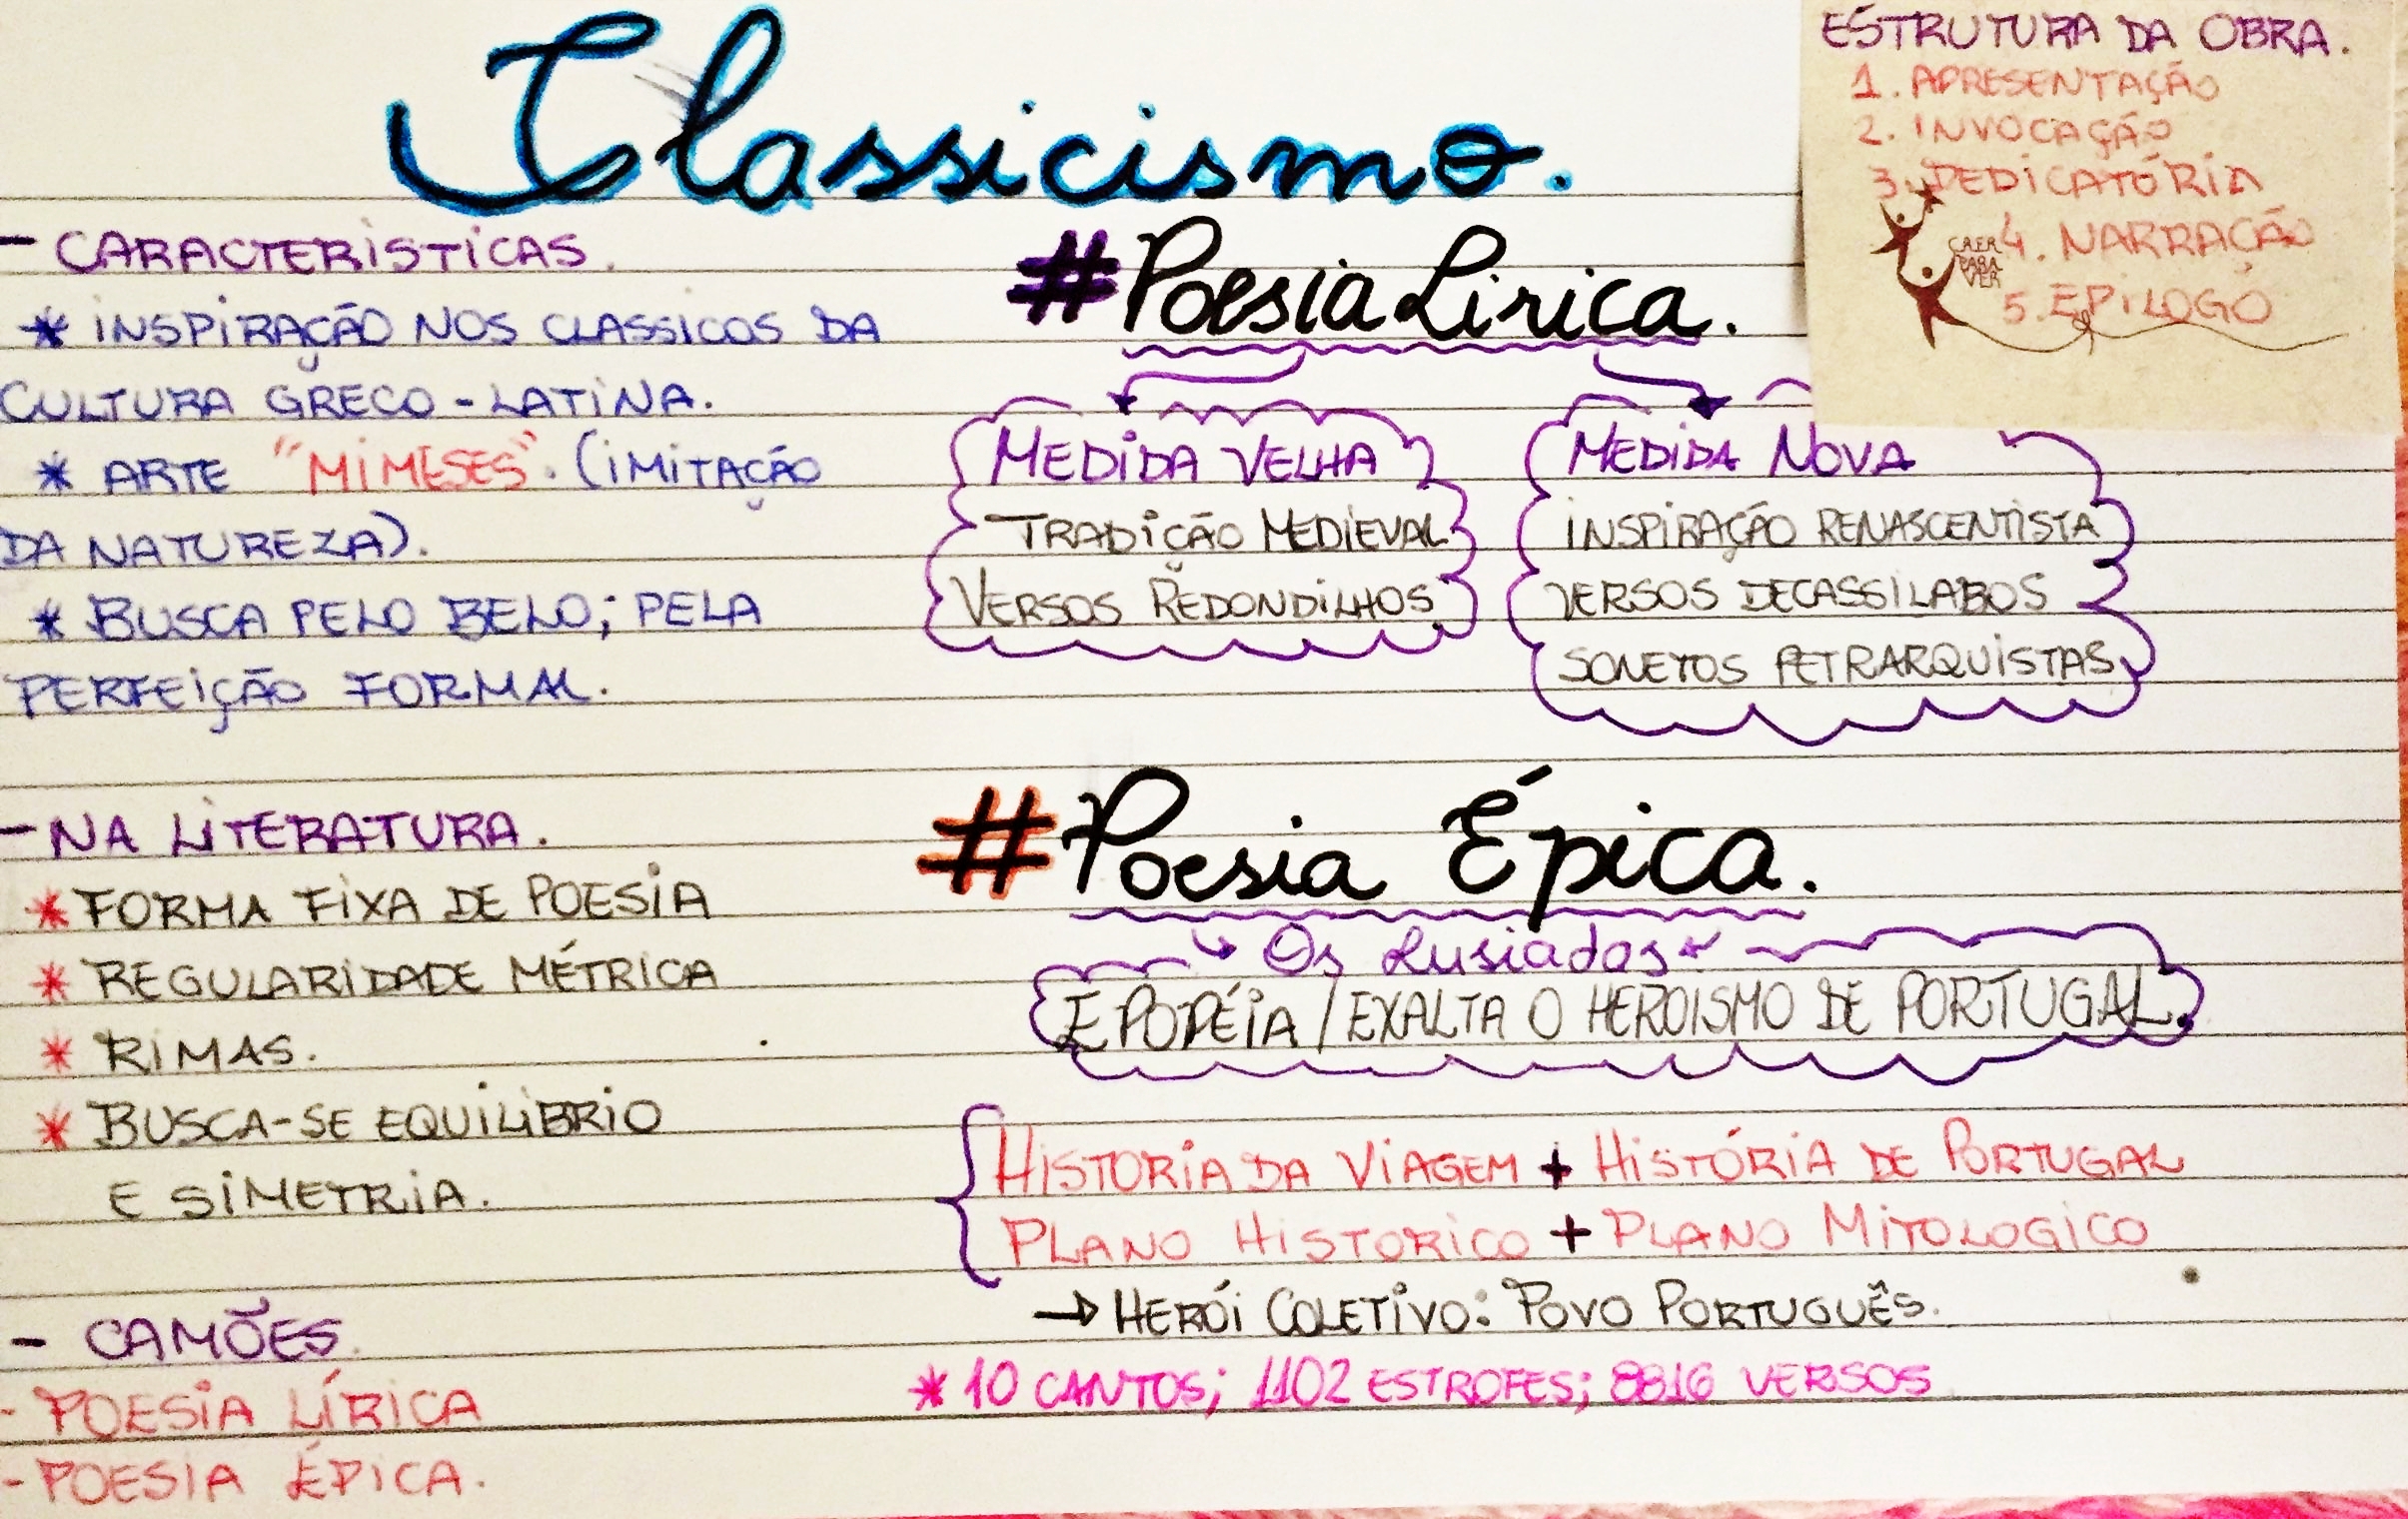 Classicismo.
- CARACTERISTICAS.
* INSPIRAÇÃO NOS CLASSICOS DA
CULTURA GRECO-LATINA.
* ARTE "MIMESES". (IMITAÇÃO
DA NATUREZA).
* BUSCA PELO BELO; PELA
PERFEIÇÃO FORMAL.
- NA LITERATURA.
* FORMA FIXA DE POESIA
* REGULARIDADE MÉTRICA
* RIMAS.
* BUSCA-SE EQUILIBRIO
E SIMETRIA.
- CAMÕES.
- POESIA LÍRICA
- POESIA ÉPICA.
#Poesia Lirica.
MEDIDA VELHA
TRADIÇÃO MEDIEVAL
VERSOS REDONDILHOS
MEDIDA NOVA
INSPIRAÇÃO RENASCENTISTA
VERSOS DECASSILABOS
SONETOS PETRARQUISTAS
#Poesia Épica.
Os Lusiadas
EPOPÉIA / EXALTA O HEROISMO DE PORTUGAL.
HISTORIA DA VIAGEM + HISTÓRIA DE PORTUGAL
PLANO HISTORICO + PLANO MITOLOGICO
→ HERÓI COLETIVO: POVO PORTUGUÊS.
* 10 CANTOS; 1102 ESTROFES; 8816 VERSOS
ESTRUTURA DA OBRA.
1. APRESENTAÇÃO
2. INVOCAÇÃO
3. DEDICATÓRIA
4. NARRAÇÃO
5. EPILOGO
CRER
PARA
VER